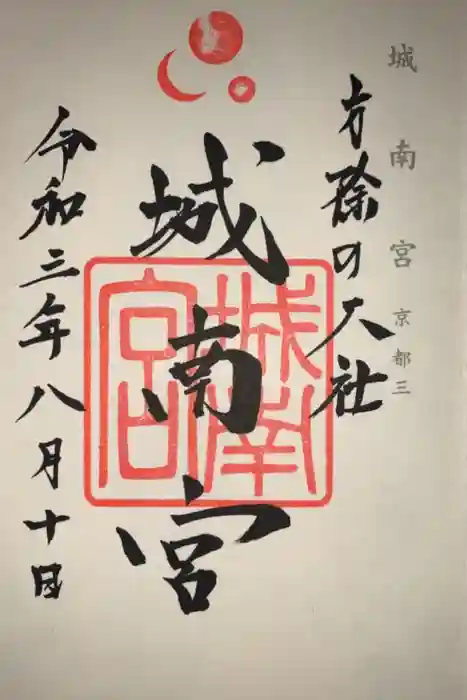 城南宮 京都三
方除の大社
城南宮
城南宮
令和三年八月十日